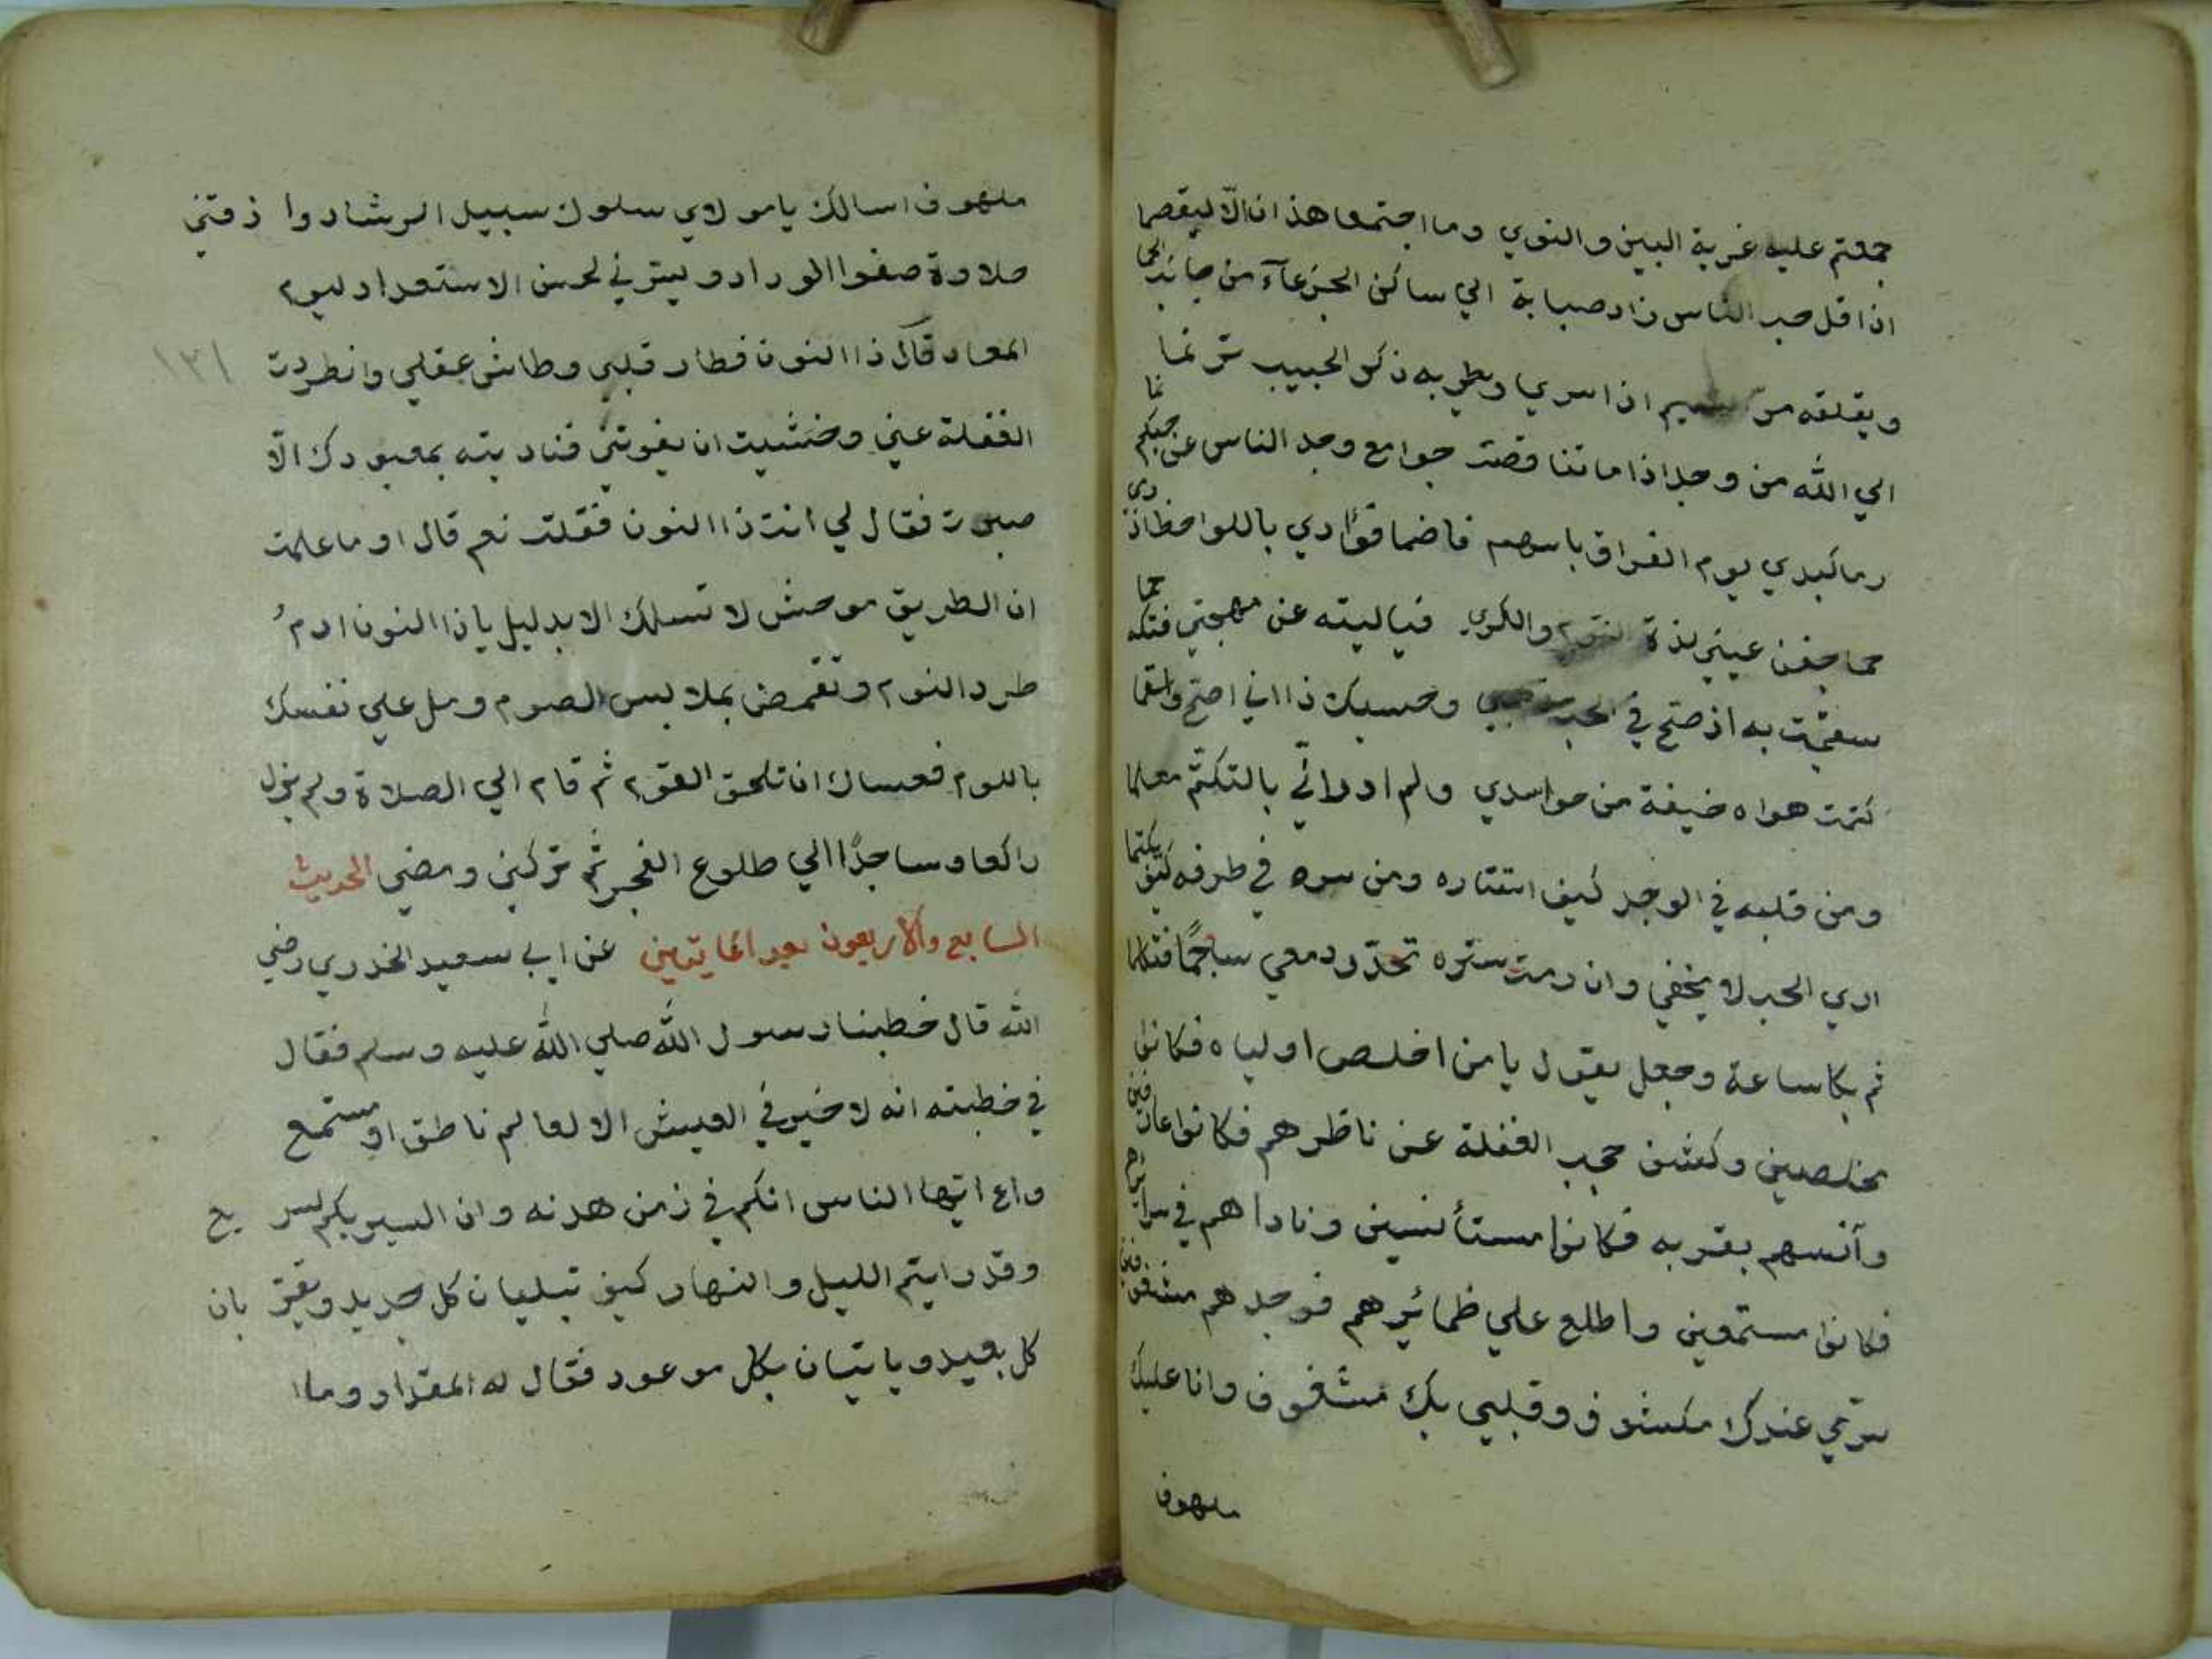 جمعتم عليه غربة البين والنوي وما اجتمعا هذان الّا ليقصما
اذا قل صبر الناس زاد صبابة الي ساكن الجزعآء من جانب الحمى
ويقلقه مر اذا سري ويطربه ذكر الحبيب ترنما
الي الله من وجد اذا ما تناقصت جوامع وجد الناس عن حبكم نما
رما كبدي يوم الفراق باسهم فاضما فؤادي باللواحظ اذ رمى
حما جفن عيني لذة النوم والكري فياليته عن مهجتي فتكه حما
سقمت به اذ صح في الحب وحسبك ذا اني اصح واسقما
كتمت هواه خيفة من حواسدي ولم ادر اني بالتكتم معلما
ومن قلبه في الوجد كيف استتاره ومن سره في طرفه كيف يكتما
اري الحب لا يخفي وان رمت ستره تحدّر دمعي ساجمًا فتكلما
ثم بكا ساعة وجعل يقول يا من اخلص اولياه فكانوا
مخلصين وكشف حجب الغفلة عن ناظرهم فكانوا عارفين
وآنسهم بقربه فكانوا مستأنسين وناداهم في سرائرهم
فكانوا مستمعين واطلع علي ظمائرهم فوجدهم مشفقين
سرّي عندك مكشوف وقلبي بك مشغوف وانا عليك
ملهوف
ملهوف اسالك يا مولاي سلوك سبيل الرشاد واذقتني
حلاوة صفوا الوراد ويسرني لحسن الاستعداد ليوم
المعاد قال ذا النون فطار قلبي وطاش عقلي وانطردت
الغفلة عني وخشيت ان يفوتني فناديته بمعبودك الّا
صبرت فقال لي انت ذا النون فقلت نعم قال او ما علمت
ان الطريق موحش لا تسلك الا بدليل يا ذا النون ادم
طرد النوم وتقمص بملابس الصوم ومل علي نفسك
باللوم فعساك ان تلحق القوم ثم قام الي الصلاة ولم يزل
راكعا وساجدًا الي طلوع الفجر ثم تركني ومضي الحديث
السابع والاربعون بعد المايتين عن ابي سعيد الخدري رضي
الله قال خطبنا رسول الله صلي الله عليه وسلم فقال
في خطبته انه لا خير في العيش الا لعالم ناطق او مستمع
واع ايها الناس انكم في زمن هدنه وان السير بكم لسريع
وقد رايتم الليل والنهار كيف تبليان كل جديد ويقربان
كل بعيد وياتيان بكل موعود فقال له المقداد وما ا
١٣١